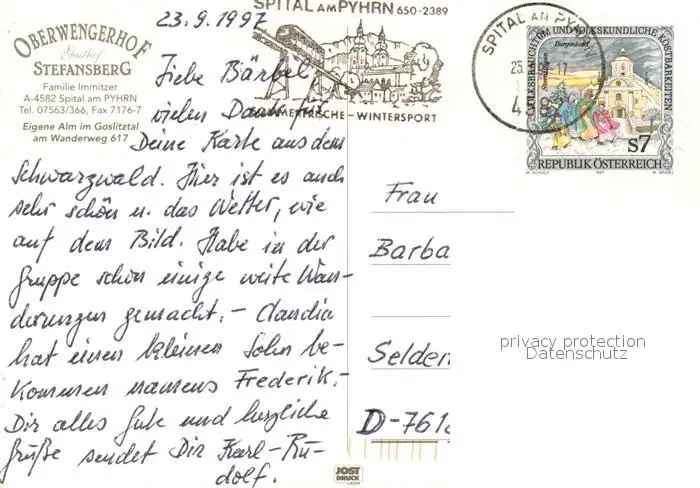 23.9.1997
OBERWENGERHOF
Gasthof
STEFANSBERG
Familie Immitzer
A-4582 Spital am PYHRN
Tel. 07563/366, Fax 7176-7
Eigene Alm im Goslitztal
am Wanderweg 617
SPITAL AM PYHRN 650-2389
SOMMERFRISCHE - WINTERSPORT
SPITAL AM PY
25.
17
VOLKSBRAUCHTUM UND VOLKSKUNDLICHE KOSTBARKEITEN
Burgenland
s7
REPUBLIK ÖSTERREICH
1997
Liebe Bärbel,
vielen Dank für
Deine Karte aus dem
Schwarzwald. Hier ist es auch
sehr schön u. das Wetter, wie
auf dem Bild. Habe in der
Gruppe schon einige weite Wan-
derungen gemacht. – Claudia
hat einen kleinen Sohn be-
kommen namens Frederik. –
Dir alles Gute und herzliche
Grüße sendet Dir Karl-Ru-
dolf.
Frau
Barba
Selden
D-761
privacy protection
Datenschutz
JOST
DRUCK